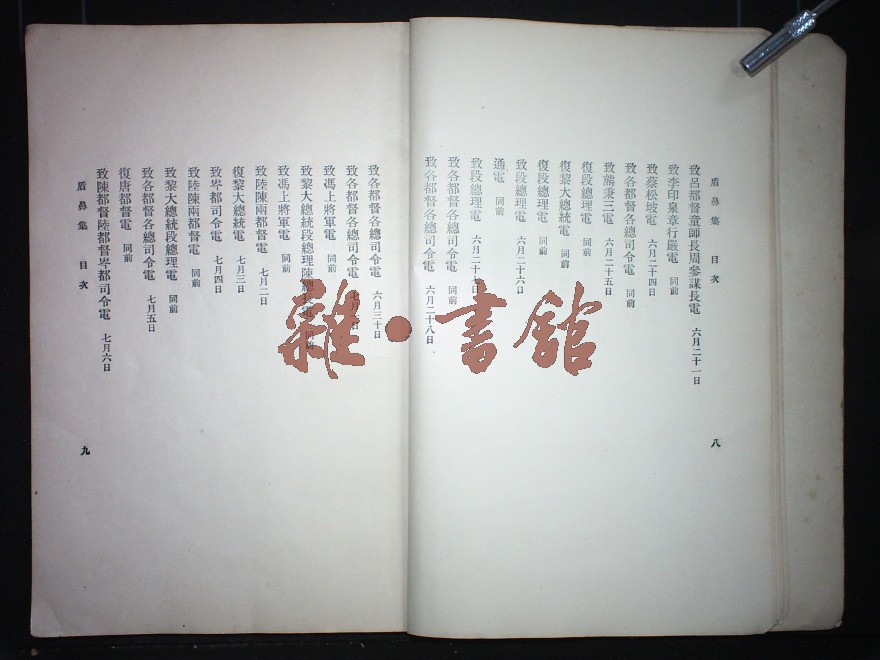 盾鼻集　目次
致呂都督童師長周參謀長電　六月二十一日
致李印泉章行嚴電　同前
致蔡松坡電　六月二十四日
致各都督各總司令電　同前
致熊秉三電　六月二十五日
復段總理電　同前
致黎大總統電　同前
復段總理電　同前
致段總理電　六月二十六日
通電　同前
致段總理電　六月二十七日
致各都督各總司令電　同前
致各都督各總司令電　六月二十八日
八
致各都督各總司令電　六月三十日
致各都督各總司令電　七月日
致馮上將軍電　同前
致黎大總統段總理陳總長電　同前
致馮上將軍電　同前
致陸陳兩都督電　七月二日
復黎大總統電　七月三日
致岑都司令電　七月四日
致陸陳兩都督電　同前
致黎大總統段總理電　同前
致各都督各總司令電　七月五日
復唐都督電　同前
致陳都督陸都督岑都司令電　七月六日
盾鼻集　目次
九
雜·書館